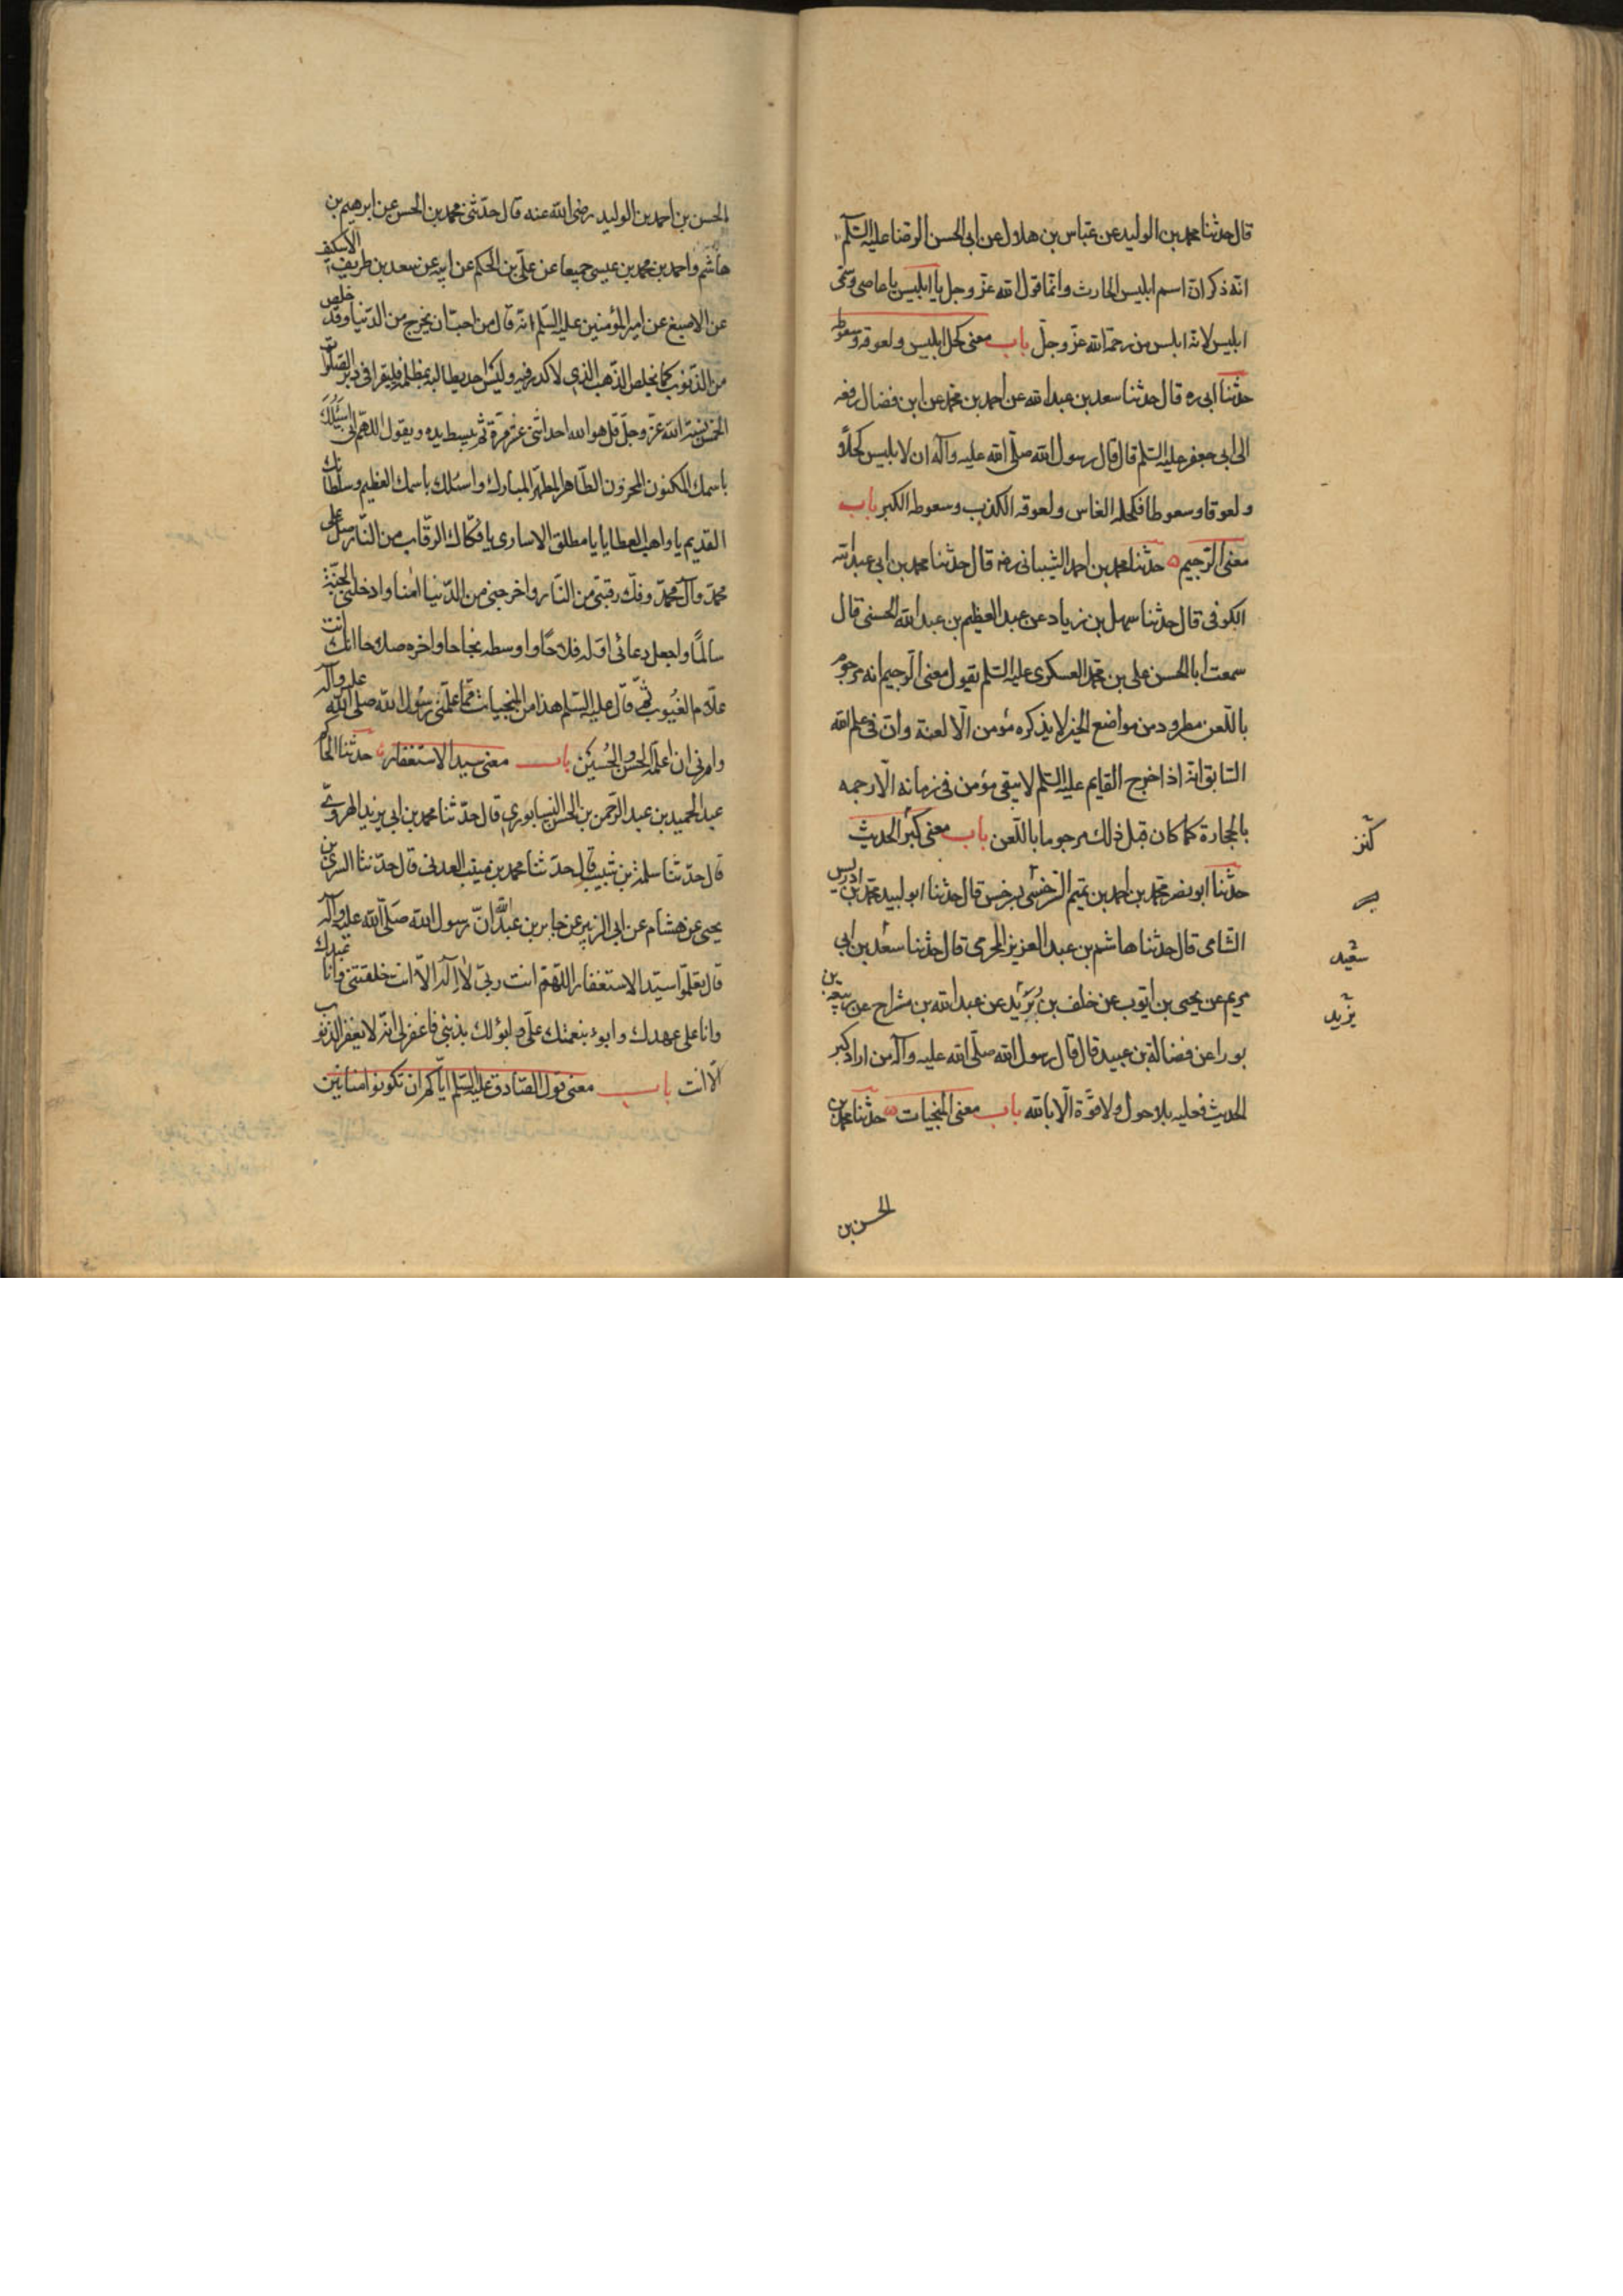 قال حدثنا محمد بن الوليد عن عباس بن هلال عن ابي الحسن الرضا عليه السلم
انه ذكر ان اسم ابليس الحارث وانما قول الله عز وجل يا ابليس يا عاصي وسمى
ابليس لانه ابلس من رحمة الله عز وجل باب معنى كحل ابليس ولعوقه وسعوطه
حدثنا ابي ره قال حدثنا سعد بن عبد الله عن احمد بن محمد عن ابن فضال رفعه
الى ابي جعفر عليه السلم قال قال رسول الله صلى الله عليه وآله ان لابليس كحلا
ولعوقا وسعوطا فكحله النعاس ولعوقه الكذب وسعوطه الكبر باب
معنى الرجيم حدثنا محمد بن احمد الشيباني رضه قال حدثنا محمد بن ابي عبد الله
الكوفى قال حدثنا سهل بن زياد عن عبد العظيم بن عبد الله الحسنى قال
سمعت ابا الحسن على بن محمد العسكرى عليه السلم يقول معنى الرجيم انه مرجوم
باللعن مطرود من مواضع الخير لا يذكره مؤمن الا لعنه وان فى علم الله
السابق انه اذا خرج القايم عليه السلم لا يبقى مؤمن فى زمانه الا رجمه
بالحجارة كما كان قبل ذلك مرجوما باللعن باب معنى كبر الحديث
كنز
حدثنا ابو نصر محمد بن احمد بن تميم السرخسى بسرخس قال حدثنا ابو لبيد محمد بن ادريس
الشامى قال حدثنا هاشم بن عبد العزيز المخرمى قال حدثنا سعد بن ابي
سعيد
مريم عن يحيى بن ايوب عن خلف بن يزيد عن عبد الله بن مشراح عن ربيعة بن
يزيد
بورا عن فضالة بن عبيد قال قال رسول الله صلى الله عليه وآله من اراد كبر
الحديث فعليه بلا حول ولا قوة الا بالله باب معنى المنجيات حدثنا محمد بن
الحسن بن
الحسن بن احمد بن الوليد رضى الله عنه قال حدثنى محمد بن الحسن عن ابرهيم بن
هاشم واحمد بن محمد بن عيسى جميعا عن على بن الحكم عن ابيه عن سعد بن طريف الاسكيف
عن الاصبغ عن امير المؤمنين عليه السلم انه قال من احب ان يخرج من الدنيا وقد خلص
من الذنوب كما يخلص الذهب الذى لا كدر فيه وليس احد يطالبه بمظلمة فليقرا فى دبر الصلوات
الخمس نسبة الله عز وجل قل هو الله احد اثنى عشر مرة ثم يبسط يده ويقول اللهم انى اسئلك
باسمك المكنون المخزون الطاهر المطهر المبارك واسئلك باسمك العظيم وسلطانك
القديم يا واهب العطايا يا مطلق الاسارى يا فكاك الرقاب من النار صل على
محمد وآل محمد وفك رقبتى من النار واخرجنى من الدنيا امنا وادخلنى الجنة
سالما واجعل دعائى اوله فلاحا واوسطه نجاحا واخره صلاحا انك انت
علام الغيوب ثم قال عليه السلم هذا من المنجيات مما علمنى رسول الله صلى الله عليه وآله
وامرنى ان اعلمه الحسن والحسين باب معنى سيد الاستغفار حدثنا الحاكم
عبد الحميد بن عبد الرحمن بن الحسن النيسابورى قال حدثنا محمد بن ابي يزيد الهروى
قال حدثنا سلمة بن شبيب قال حدثنا محمد بن منيب العدنى قال حدثنا السرى بن
يحيى عن هشام عن ابي الزبير عن جابر بن عبد الله ان رسول الله صلى الله عليه وآله
قال تعلموا سيد الاستغفار اللهم انت ربى لا اله الا انت خلقتنى وانا عبدك
وانا على عهدك وابوء بنعمتك على وابوء لك بذنبى فاغفر لى انه لا يغفر الذنوب
الا انت باب معنى قول الصادق عليه السلم اياكم ان تكونوا منانين